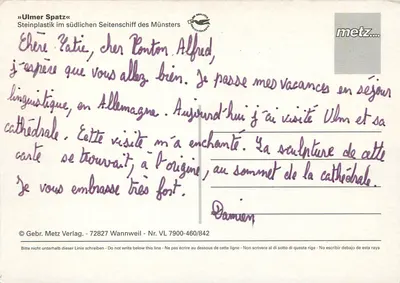 »Ulmer Spatz«
Steinplastik im südlichen Seitenschiff des Münsters
metz...
Chère Katie, cher Ponton Alfred,
j'espère que vous allez bien. Je passe mes vacances en séjour
linguistique, en Allemagne. Aujourd'hui j'ai visité Ulm et sa
cathédrale. Cette visite m'a enchanté. La sculpture de cette
carte se trouvait, à l'origine, au sommet de la cathédrale.
Je vous embrasse très fort.
Damien
© Gebr. Metz Verlag. - 72827 Wannweil - Nr. VL 7900-460/842
Bitte nicht unterhalb dieser Linie schreiben - Do not write below this line - Ne pas écrire au dessous de cette ligne - Non scrivere al di sotto di questa riga - No escribir debajo de esta raya